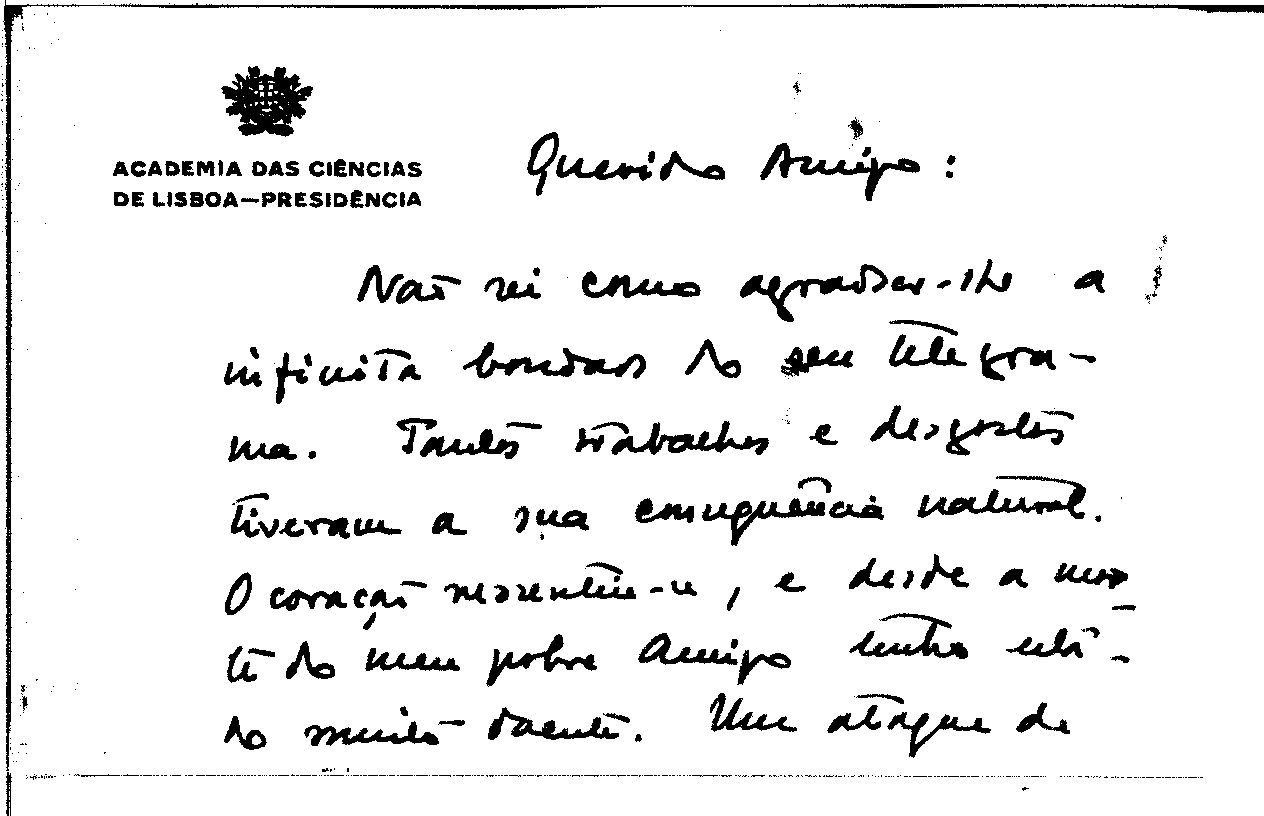 ACADEMIA DAS CIÊNCIAS
DE LISBOA—PRESIDÊNCIA
Querido Amigo:
Não sei como agradecer-lhe a
infinita bondade do seu telegra-
ma. Tantos trabalhos e desgostos
tiveram a sua consequência natural.
O coração ressentiu-se, e desde a mor-
te do meu pobre Amigo tenho esta-
do muito doente. Um ataque de